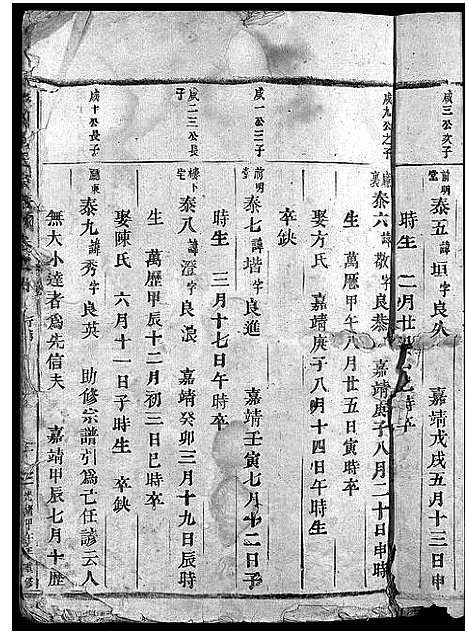 咸三公次子
前明堂
泰五 諱垣字良久 嘉靖戊戌五月十三日申
時生 二月廿 時卒
咸九公之子
泰六 諱 字良恭 嘉靖庚子八月二十日申時
生 萬曆甲午八月廿五日寅時卒
娶方氏 嘉靖庚子八月十四日午時生
卒缺
咸一公三子
前明堂
泰七 諱堦字良進 嘉靖壬寅七月十二日子
時生 三月十七日午時卒
咸二三公長子
樓下宅
泰八 諱澄字良浪 嘉靖癸卯三月十九日辰時
生 萬歷甲辰十二月初三日巳時卒
娶陳氏 六月十一日子時生 卒缺
咸十公長子
廳東
泰九 諱秀字良英 助修宗譜引爲己任諺云人
無大小達者爲先信夫 嘉靖甲辰七月十歷